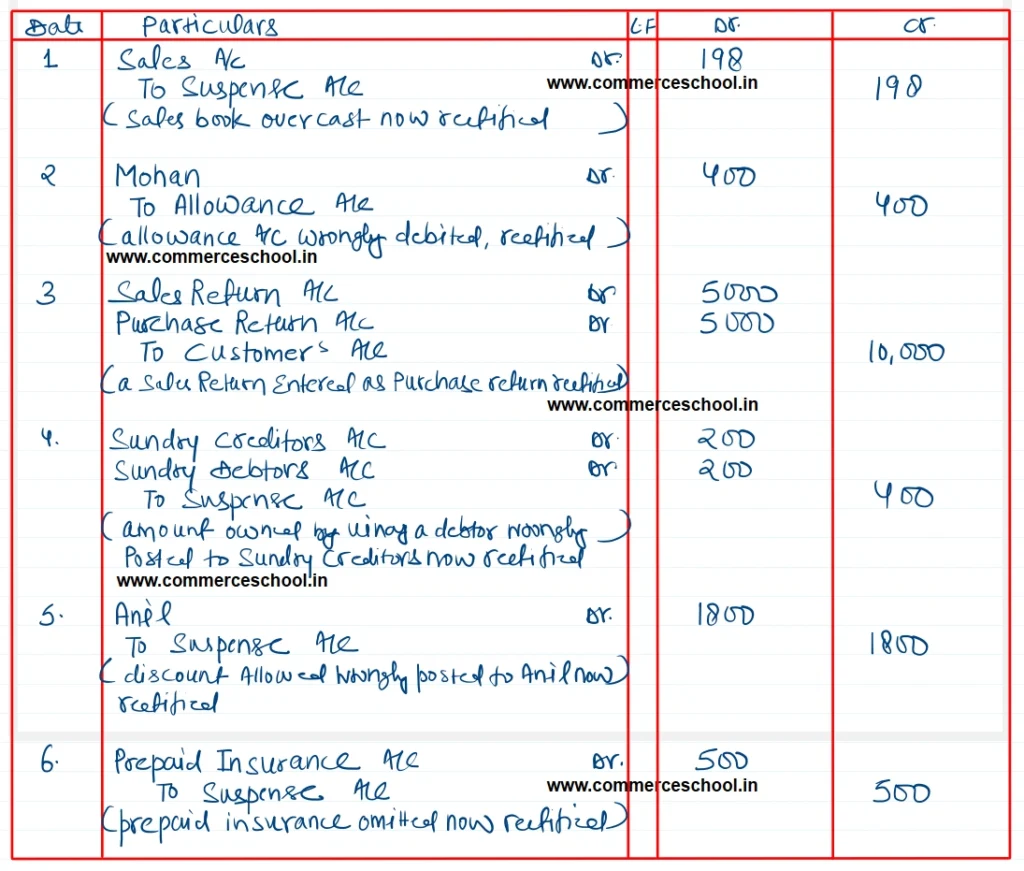 Date Particulars L.F Dr. Cr.
1 Sales A/c Dr. 198
www.commerceschool.in
To Suspense A/c 198
(Sales book overcast now rectified)
2 Mohan Dr. 400
To Allowance A/c 400
(allowance A/C wrongly debited, rectified)
www.commerceschool.in
3 Sales Return A/C Dr 5000
Purchase Return A/C Dr 5000
To Customer's A/c 10,000
(a Sales Return Entered as Purchase return rectified)
www.commerceschool.in
4. Sundry Creditors A/C Dr. 200
Sundry Debtors A/C Dr 200
To Suspense A/C 400
(amount owned by vinay a debtor wrongly)
Posted to Sundry Creditors now rectified
www.commerceschool.in
5. Anil Dr. 1800
To Suspense A/c 1800
(discount Allowed wrongly posted to Anil now)
rectified
6. Prepaid Insurance A/C Dr. 500
www.commerceschool.in
To Suspense A/c 500
(prepaid insurance omitted now rectified)